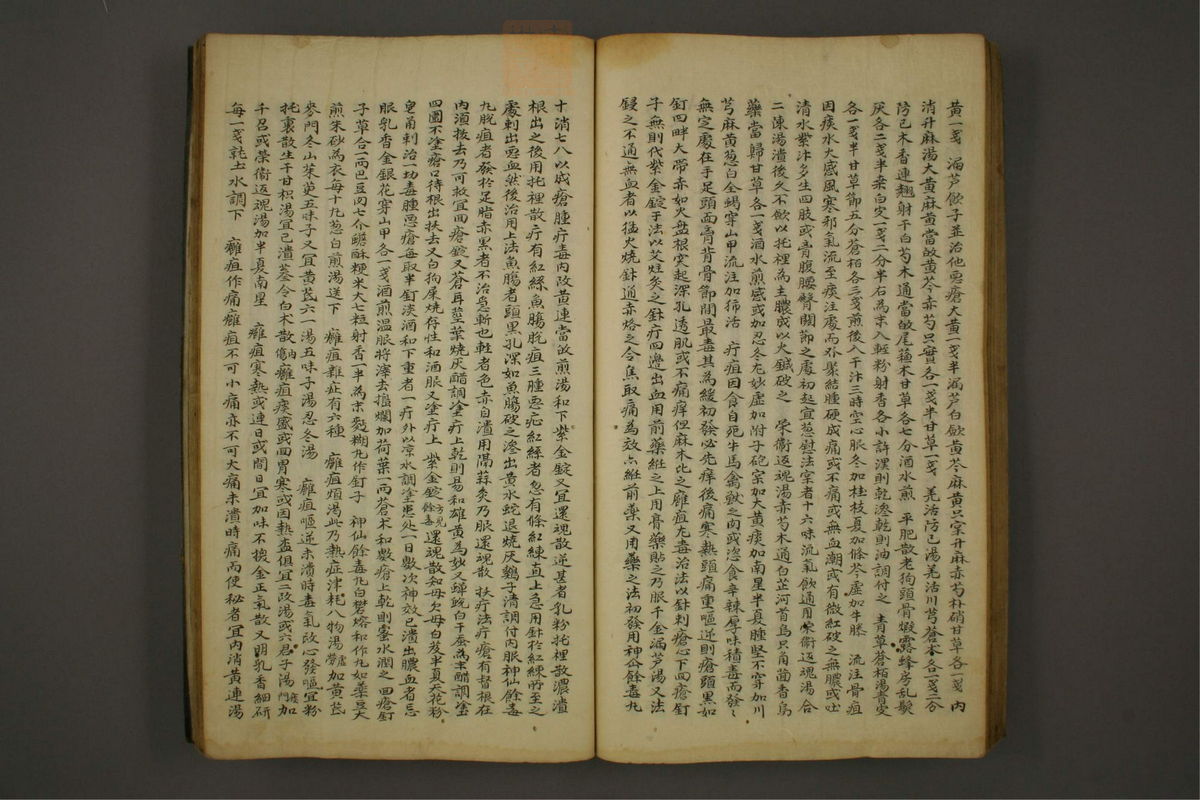 黃一戔 漏芦飮子並治他惡瘡大黃一戔半漏芦白歛黃芩麻黃只宲升麻赤芍朴硝甘草各一戔 內
消升麻湯大黃升麻黃當故黃芩赤芍只實各一戔半甘草一戔 羌活防己湯羌活川芎蒼本各一戔二分
防己木香連翹射干白芍木通當故尾蘓木甘草各七分酒水煎 平肥散老狗頭骨煆露蜂房乱髮
灰各二戔半桒白皮一戔二分半右為末入輕粉射香各小許湿則乾滲乾則油調付之 青草蒼栢湯青皮
各一戔半甘草節五分蒼栢各三戔煎後入干汴三時空心服冬加桂枝夏加條芩虛加牛膝 流注骨疽
因痰水大感風寒邪氣流至痰注處而外聚結腫硬成痛或不痛或無血潮或有微紅破之無膿或出
淸水紫汴多生四肢或膏腹腰臀関節之處初起宜葱慰法宲者十六味流氣飮通用荣衛返魂湯合
二陳湯潰後久不歛以托裡為主膿成以火鍼破之 荣衛返魂湯赤芍木通白芷河首烏只角茴香烏
藥當歸甘草各一戔酒水煎感或加忍冬尤妙虛加附子砲宲加大黃痰加南星半夏腫堅不穿加川
芎麻黃葱白全蝎穿山甲流注加獨活 疔疽因食自死牛馬禽獸之肉或恣食辛辣厚味積毒而發
無定處在手足頭面膏背骨節間最毒其為緩初發必先痒後痛寒熱頭痛重嘔逆則瘡頭黑如
釘四畔大帶赤如火盘根突起深孔透肌或不痛痒但麻木比之癰疽尤毒治法以針刺瘡心下四瘡釘
子無則代紫金錠子法以艾炷灸之針疔四邊出血用前藥絍之上用膏藥貼之乃服千金漏芦湯又法
鋟之不通無血者以猛火燒針通赤烙之令焦取痛為效亦絍前藥又用藥之法初發用神仚餘毒丸
十消七八以成瘡腫疔毒內攻黃連當故煎湯和下紫金錠又宜還魂散逆甚者乳粉托裡散濃潰
根出之後用托裡散疔有紅絲魚膓脫疽三腫惡症紅絲者忽有條紅練直上急用針於紅練所至之
處刺出惡血然後治用上法魚膓者頭黑孔深如魚膓破之滲出黃水蛇退燒灰鷄子淸調付內服神仙餘毒
九脫疽者發於足脂赤黑者不治急斬也輕者色赤自潰用隔蒜灸乃服還魂散 扶疔法疔瘡有督根在
內湏拔去乃可救宜四瘡錠又蒼耳莖葉燒灰醋調塗疔上乾則易和雄黃為妙又蟬蛻白干蚕為末醋調塗
四圍不塗瘡口待根出扶去又白狗屎燒存性和酒服又塗疔上 紫金錠方見餘毒 還魂散知母欠母白芨半夏天花粉
皂角刺治一功毒腫惡瘡每取半釘淡酒和下重者一疔外以凉水調塗患处一日數次神效已潰出膿血者忌
服乳香金銀花穿山甲各一戔酒煎温服將滓去搗爛加荷葉一兩蒼术和數瘡上乾則蜜水潤之 四瘡釘
子草合二兩巴豆肉七介醿酥粳米大七粒射香一半為末麪糊丸作釘子 神仙餘毒丸白礬熔和作丸如菉豆大
煎朱砂為衣每十九葱白煎湯送下 癰疽雜症有六種 癰疽煩渴此乃熱症津耗八物湯虛勞加黃芪
麥門冬山茱萸五味子又宜黃芪六一湯五味子湯忍冬湯 癰疽嘔逆未潰時毒氣攻心發嘔宜粉
托裏散生干甘枳湯宜已潰蔘令白术散內傷 癰疽痰盛或因胃寒或因熱盉俱宜二陳湯或六君子湯痰門加
千召或荣衛返魂湯加半夏南星 癰疽寒熱或連日或間日宜加味不換金正氣散又明乳香細研
每一戔䟴土水調下 癰疽作痛癰疽不可小痛亦不可大痛未潰時痛而使秘者宜內消黃連湯